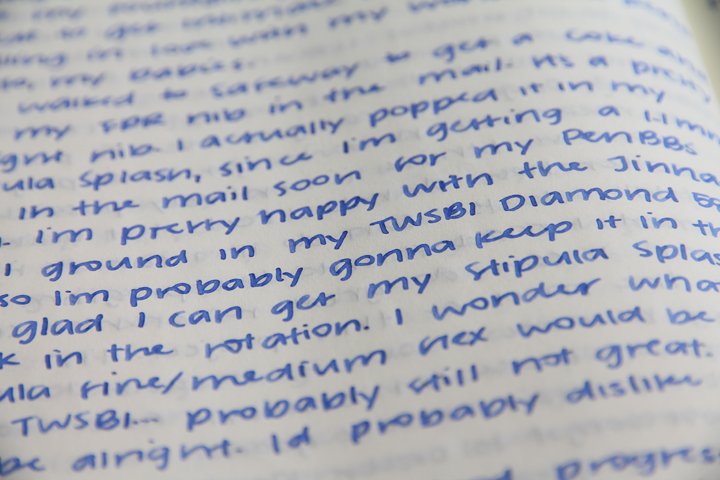 to get
in love with my
my babies.
walked to safeway to get a coke
my FPR nib in the mail. It's a pretty
nib. I actually popped it in my
ula splash, since I'm getting a 1.1mm
in the mail soon for my PenBBs
I'm pretty happy with the Jinha
I ground in my TWSBI Diamond
so I'm probably gonna keep it in th
glad I can get my stipula splas
k in the rotation. I wonder wha
ula fine/medium flex would be
TWSBI... probably still not great.
be alright. Id probably dislike
progres